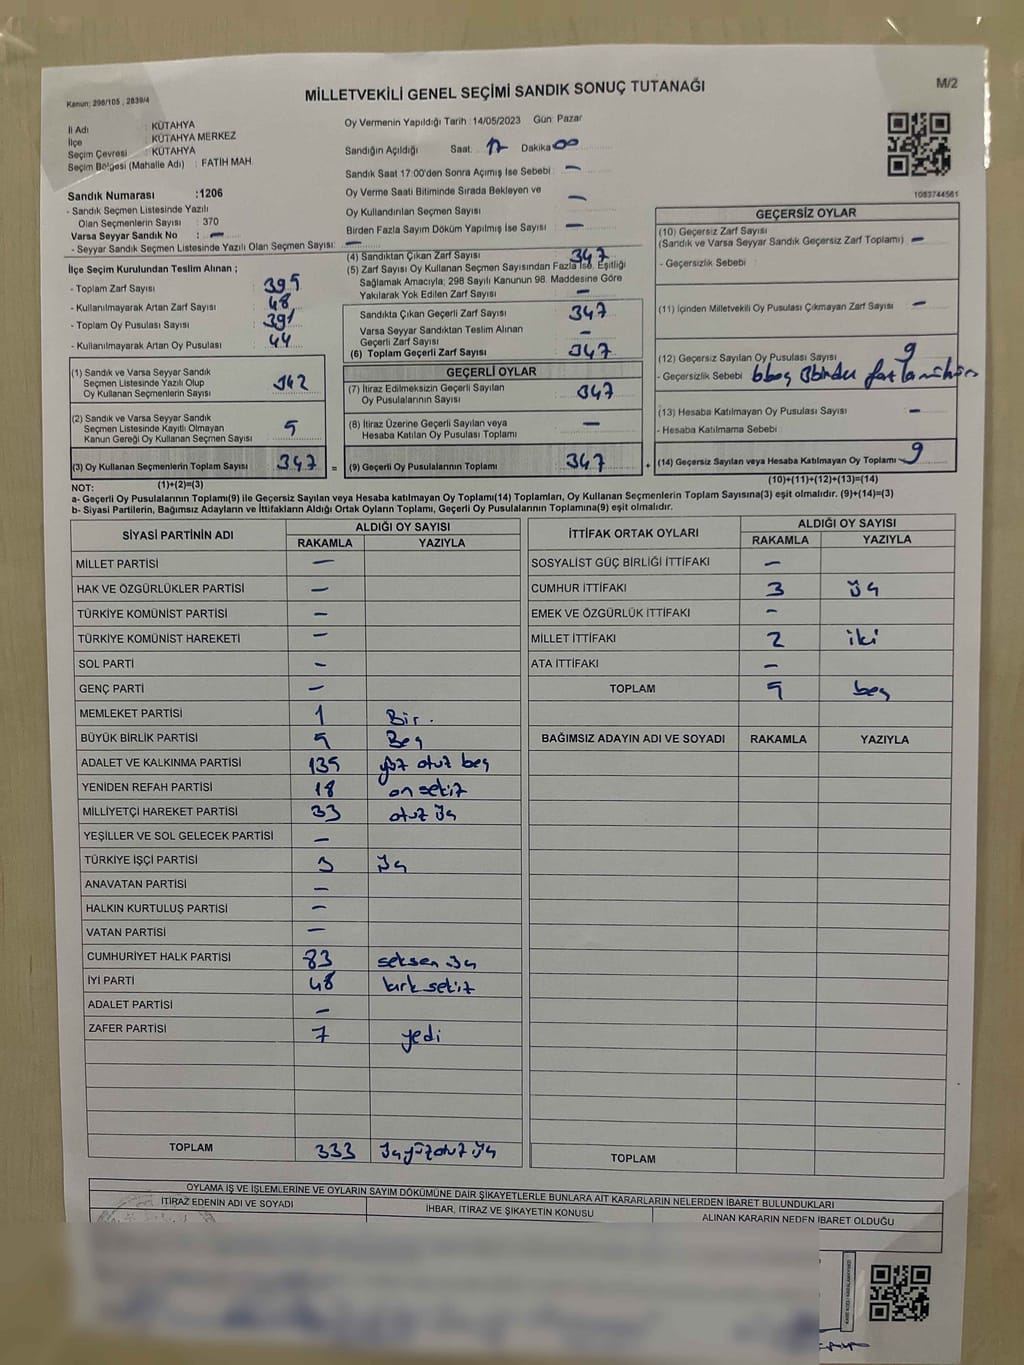 Kanun: 298/105 , 2839/4
MİLLETVEKİLİ GENEL SEÇİMİ SANDIK SONUÇ TUTANAĞI
M/2
İl Adı : KÜTAHYA
İlçe : KÜTAHYA MERKEZ
Seçim Çevresi : KÜTAHYA
Seçim Bölgesi (Mahalle Adı) : FATİH MAH.
Sandık Numarası :1206
- Sandık Seçmen Listesinde Yazılı
Olan Seçmenlerin Sayısı : 370
Varsa Seyyar Sandık No : —
- Seyyar Sandık Seçmen Listesinde Yazılı Olan Seçmen Sayısı: —
Oy Vermenin Yapıldığı Tarih :14/05/2023 Gün: Pazar
Sandığın Açıldığı Saat: 17 Dakika 00
Sandık Saat 17:00'den Sonra Açımış İse Sebebi : —
Oy Verme Saati Bitiminde Sırada Bekleyen ve
Oy Kullandırılan Seçmen Sayısı —
Birden Fazla Sayım Döküm Yapılmış İse Sayısı —
1083744561
İlçe Seçim Kurulundan Teslim Alınan ;
- Toplam Zarf Sayısı : 395
- Kullanılmayarak Artan Zarf Sayısı : 48
- Toplam Oy Pusulası Sayısı : 391
- Kullanılmayarak Artan Oy Pusulası : 44
(1) Sandık ve Varsa Seyyar Sandık
Seçmen Listesinde Yazılı Olup
Oy Kullanan Seçmenlerin Sayısı 342
(2) Sandık ve Varsa Seyyar Sandık
Seçmen Listesinde Kayıtlı Olmayan
Kanun Gereği Oy Kullanan Seçmen Sayısı 5
(3) Oy Kullanan Seçmenlerin Toplam Sayısı 347 =
(1)+(2)=(3)
(4) Sandıktan Çıkan Zarf Sayısı 347
(5) Zarf Sayısı Oy Kullanan Seçmen Sayısından Fazla İse, Eşitliği
Sağlamak Amacıyla; 298 Sayılı Kanunun 98. Maddesine Göre
Yakılarak Yok Edilen Zarf Sayısı —
Sandıkta Çıkan Geçerli Zarf Sayısı 347
Varsa Seyyar Sandıktan Teslim Alınan
Geçerli Zarf Sayısı —
(6) Toplam Geçerli Zarf Sayısı 347
GEÇERLİ OYLAR
(7) İtiraz Edilmeksizin Geçerli Sayılan
Oy Pusulalarının Sayısı 347
(8) İtiraz Üzerine Geçerli Sayılan veya
Hesaba Katılan Oy Pusulası Toplamı —
(9) Geçerli Oy Pusulalarının Toplamı 347 +
GEÇERSİZ OYLAR
(10) Geçersiz Zarf Sayısı
(Sandık ve Varsa Seyyar Sandık Geçersiz Zarf Toplamı) —
- Geçersizlik Sebebi :
(11) İçinden Milletvekili Oy Pusulası Çıkmayan Zarf Sayısı —
(12) Geçersiz Sayılan Oy Pusulası Sayısı 9
- Geçersizlik Sebebi 6boş 3birden fazla mühür
(13) Hesaba Katılmayan Oy Pusulası Sayısı —
- Hesaba Katılmama Sebebi :
(14) Geçersiz Sayılan veya Hesaba Katılmayan Oy Toplamı 9
(10)+(11)+(12)+(13)=(14)
NOT:
a- Geçerli Oy Pusulalarının Toplamı(9) ile Geçersiz Sayılan veya Hesaba katılmayan Oy Toplamı(14) Toplamları, Oy Kullanan Seçmenlerin Toplam Sayısına(3) eşit olmalıdır. (9)+(14)=(3)
b- Siyasi Partilerin, Bağımsız Adayların ve İttifakların Aldığı Ortak Oyların Toplamı, Geçerli Oy Pusulalarının Toplamına(9) eşit olmalıdır.
SİYASİ PARTİNİN ADI ALDIĞI OY SAYISI
RAKAMLA YAZIYLA
MİLLET PARTİSİ —
HAK VE ÖZGÜRLÜKLER PARTİSİ —
TÜRKİYE KOMÜNİST PARTİSİ —
TÜRKİYE KOMÜNİST HAREKETİ —
SOL PARTİ —
GENÇ PARTİ —
MEMLEKET PARTİSİ 1 Bir.
BÜYÜK BİRLİK PARTİSİ 5 Beş
ADALET VE KALKINMA PARTİSİ 135 yüz otuz beş
YENİDEN REFAH PARTİSİ 18 on sekiz
MİLLİYETÇİ HAREKET PARTİSİ 33 otuz üç
YEŞİLLER VE SOL GELECEK PARTİSİ —
TÜRKİYE İŞÇİ PARTİSİ 3 üç
ANAVATAN PARTİSİ —
HALKIN KURTULUŞ PARTİSİ —
VATAN PARTİSİ —
CUMHURİYET HALK PARTİSİ 83 seksen üç
İYİ PARTİ 48 kırk sekiz
ADALET PARTİSİ —
ZAFER PARTİSİ 7 yedi
TOPLAM 333 üçyüz otuz üç
İTTİFAK ORTAK OYLARI ALDIĞI OY SAYISI
RAKAMLA YAZIYLA
SOSYALİST GÜÇ BİRLİĞİ İTTİFAKI —
CUMHUR İTTİFAKI 3 üç
EMEK VE ÖZGÜRLÜK İTTİFAKI —
MİLLET İTTİFAKI 2 iki
ATA İTTİFAKI —
TOPLAM 5 beş
BAĞIMSIZ ADAYIN ADI VE SOYADI RAKAMLA YAZIYLA
TOPLAM
OYLAMA İŞ VE İŞLEMLERİNE VE OYLARIN SAYIM DÖKÜMÜNE DAİR ŞİKAYETLERLE BUNLARA AİT KARARLARIN NELERDEN İBARET BULUNDUKLARI
İTİRAZ EDENİN ADI VE SOYADI İHBAR, İTİRAZ VE ŞİKAYETİN KONUSU ALINAN KARARIN NEDEN İBARET OLDUĞU